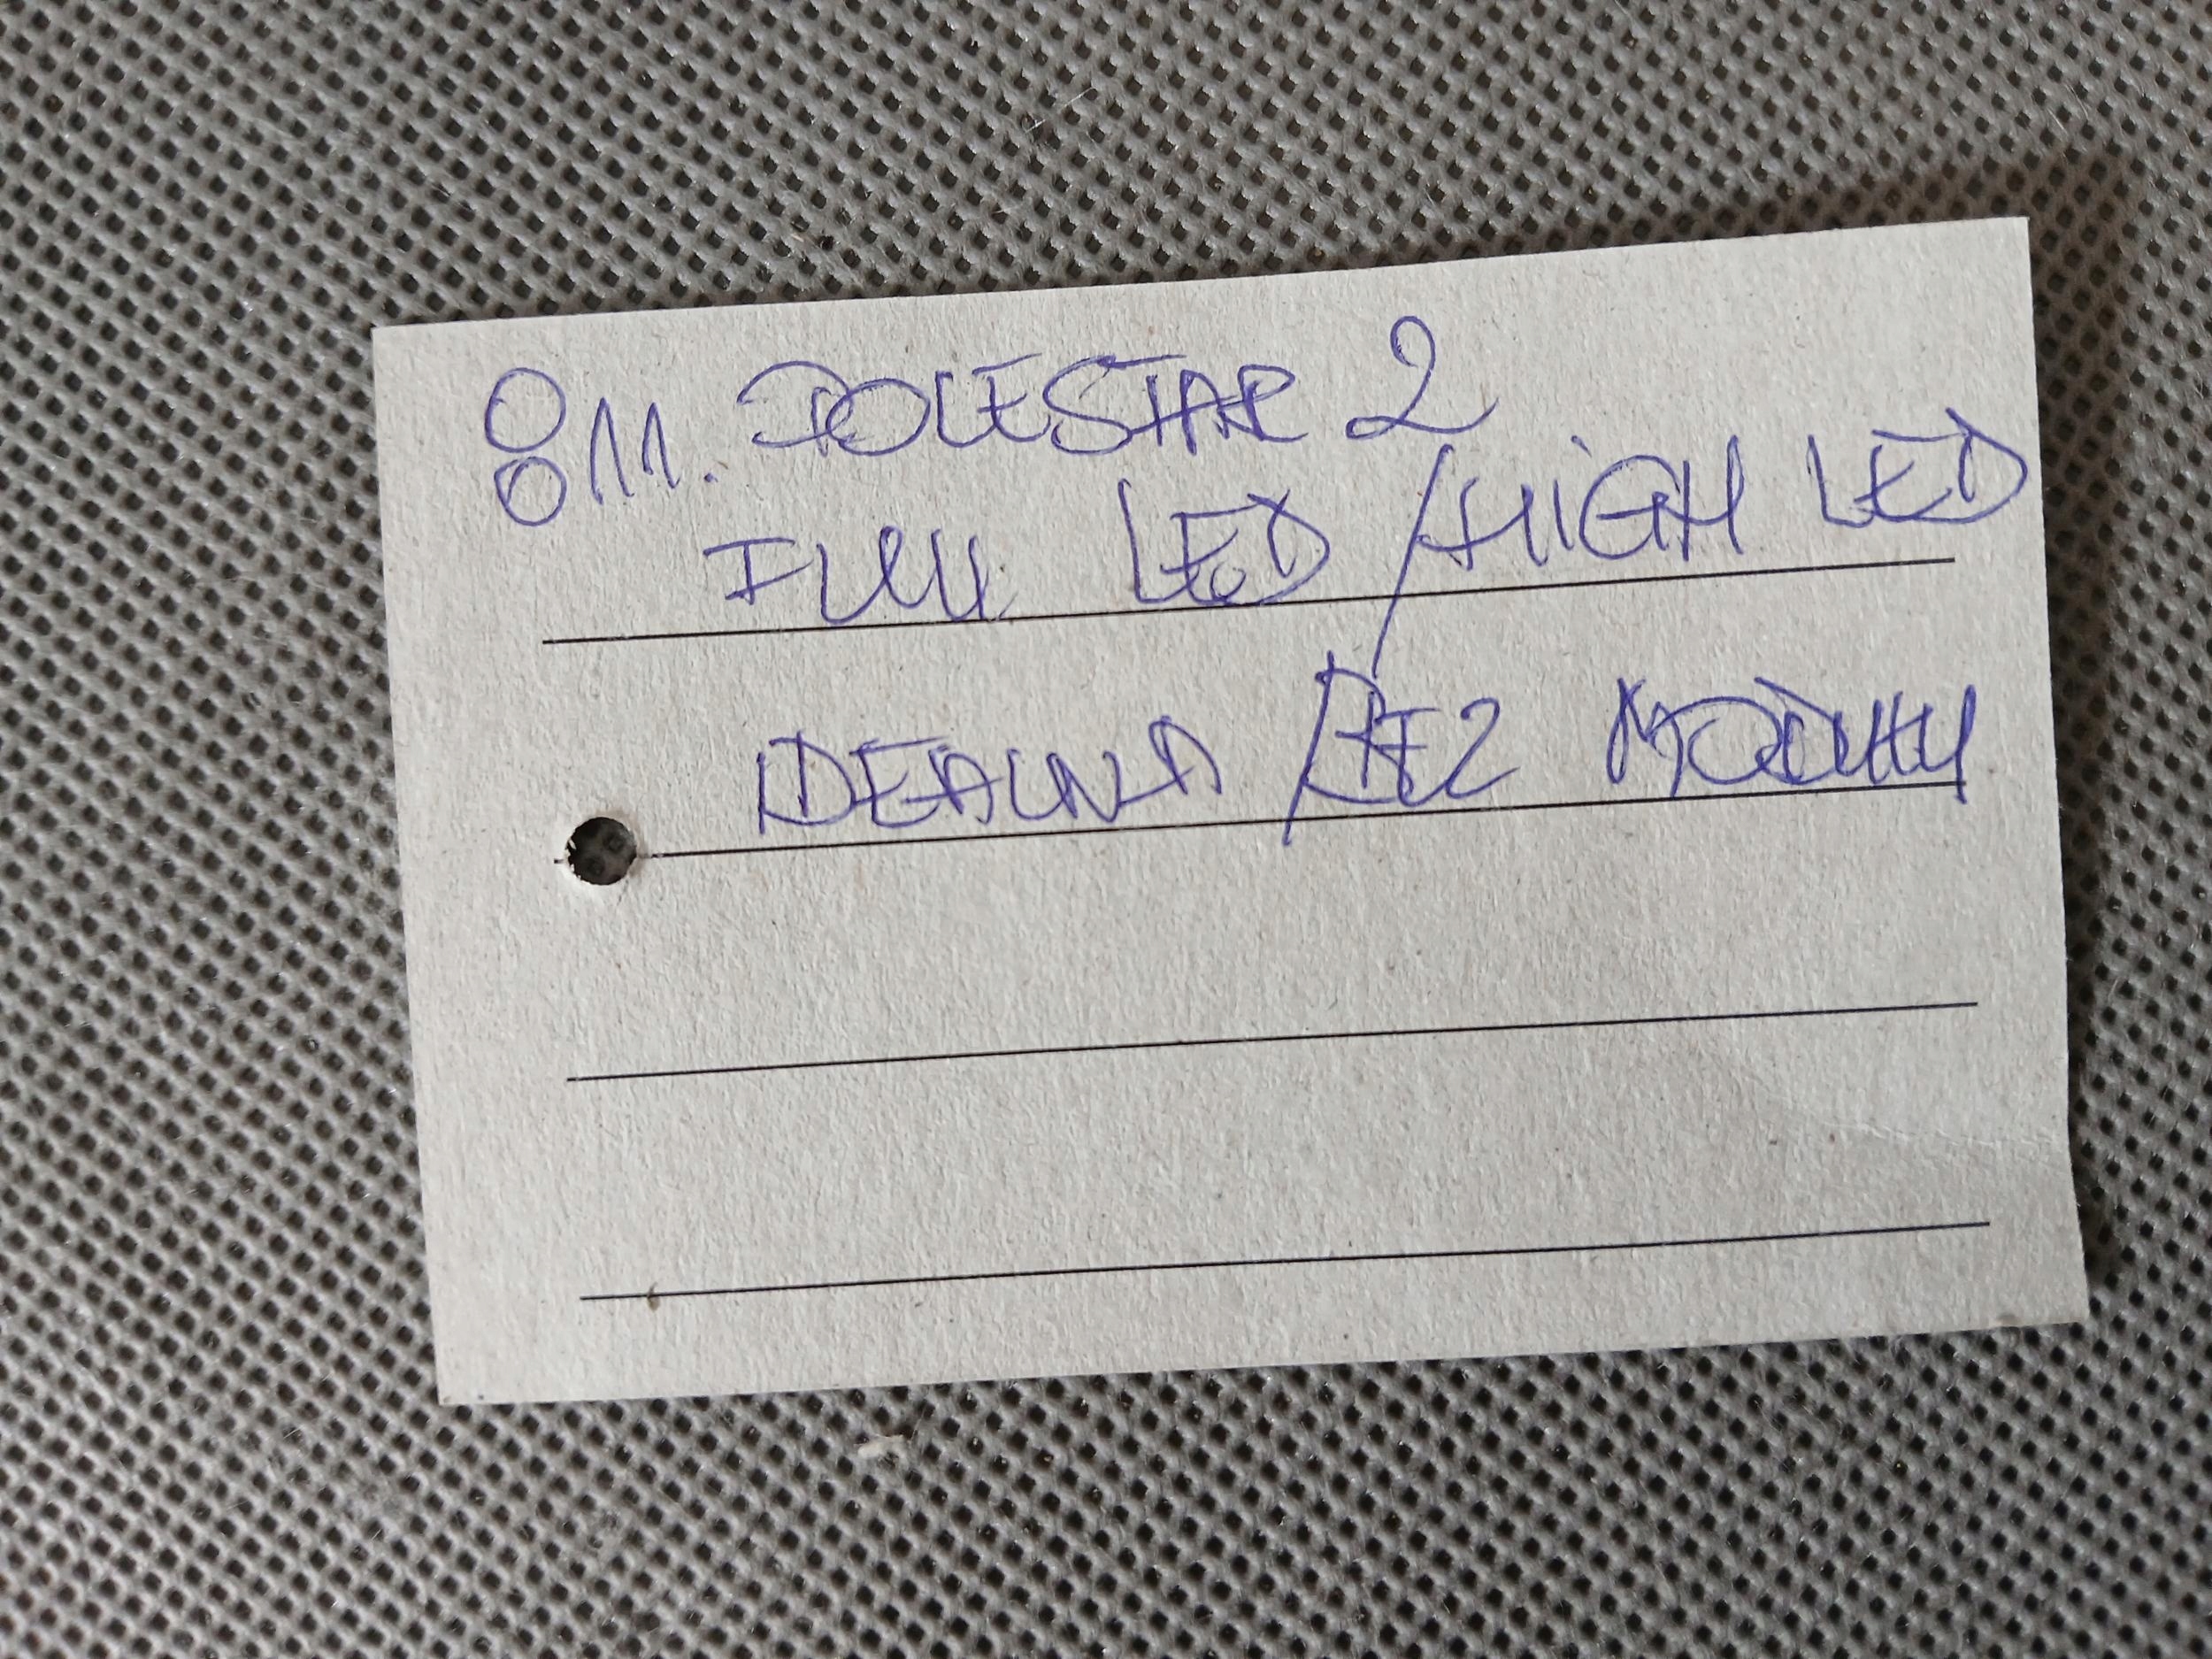 811. POLESTAR 2
FULL LED / HIGH LED
IDEALNA / BEZ MODUŁU